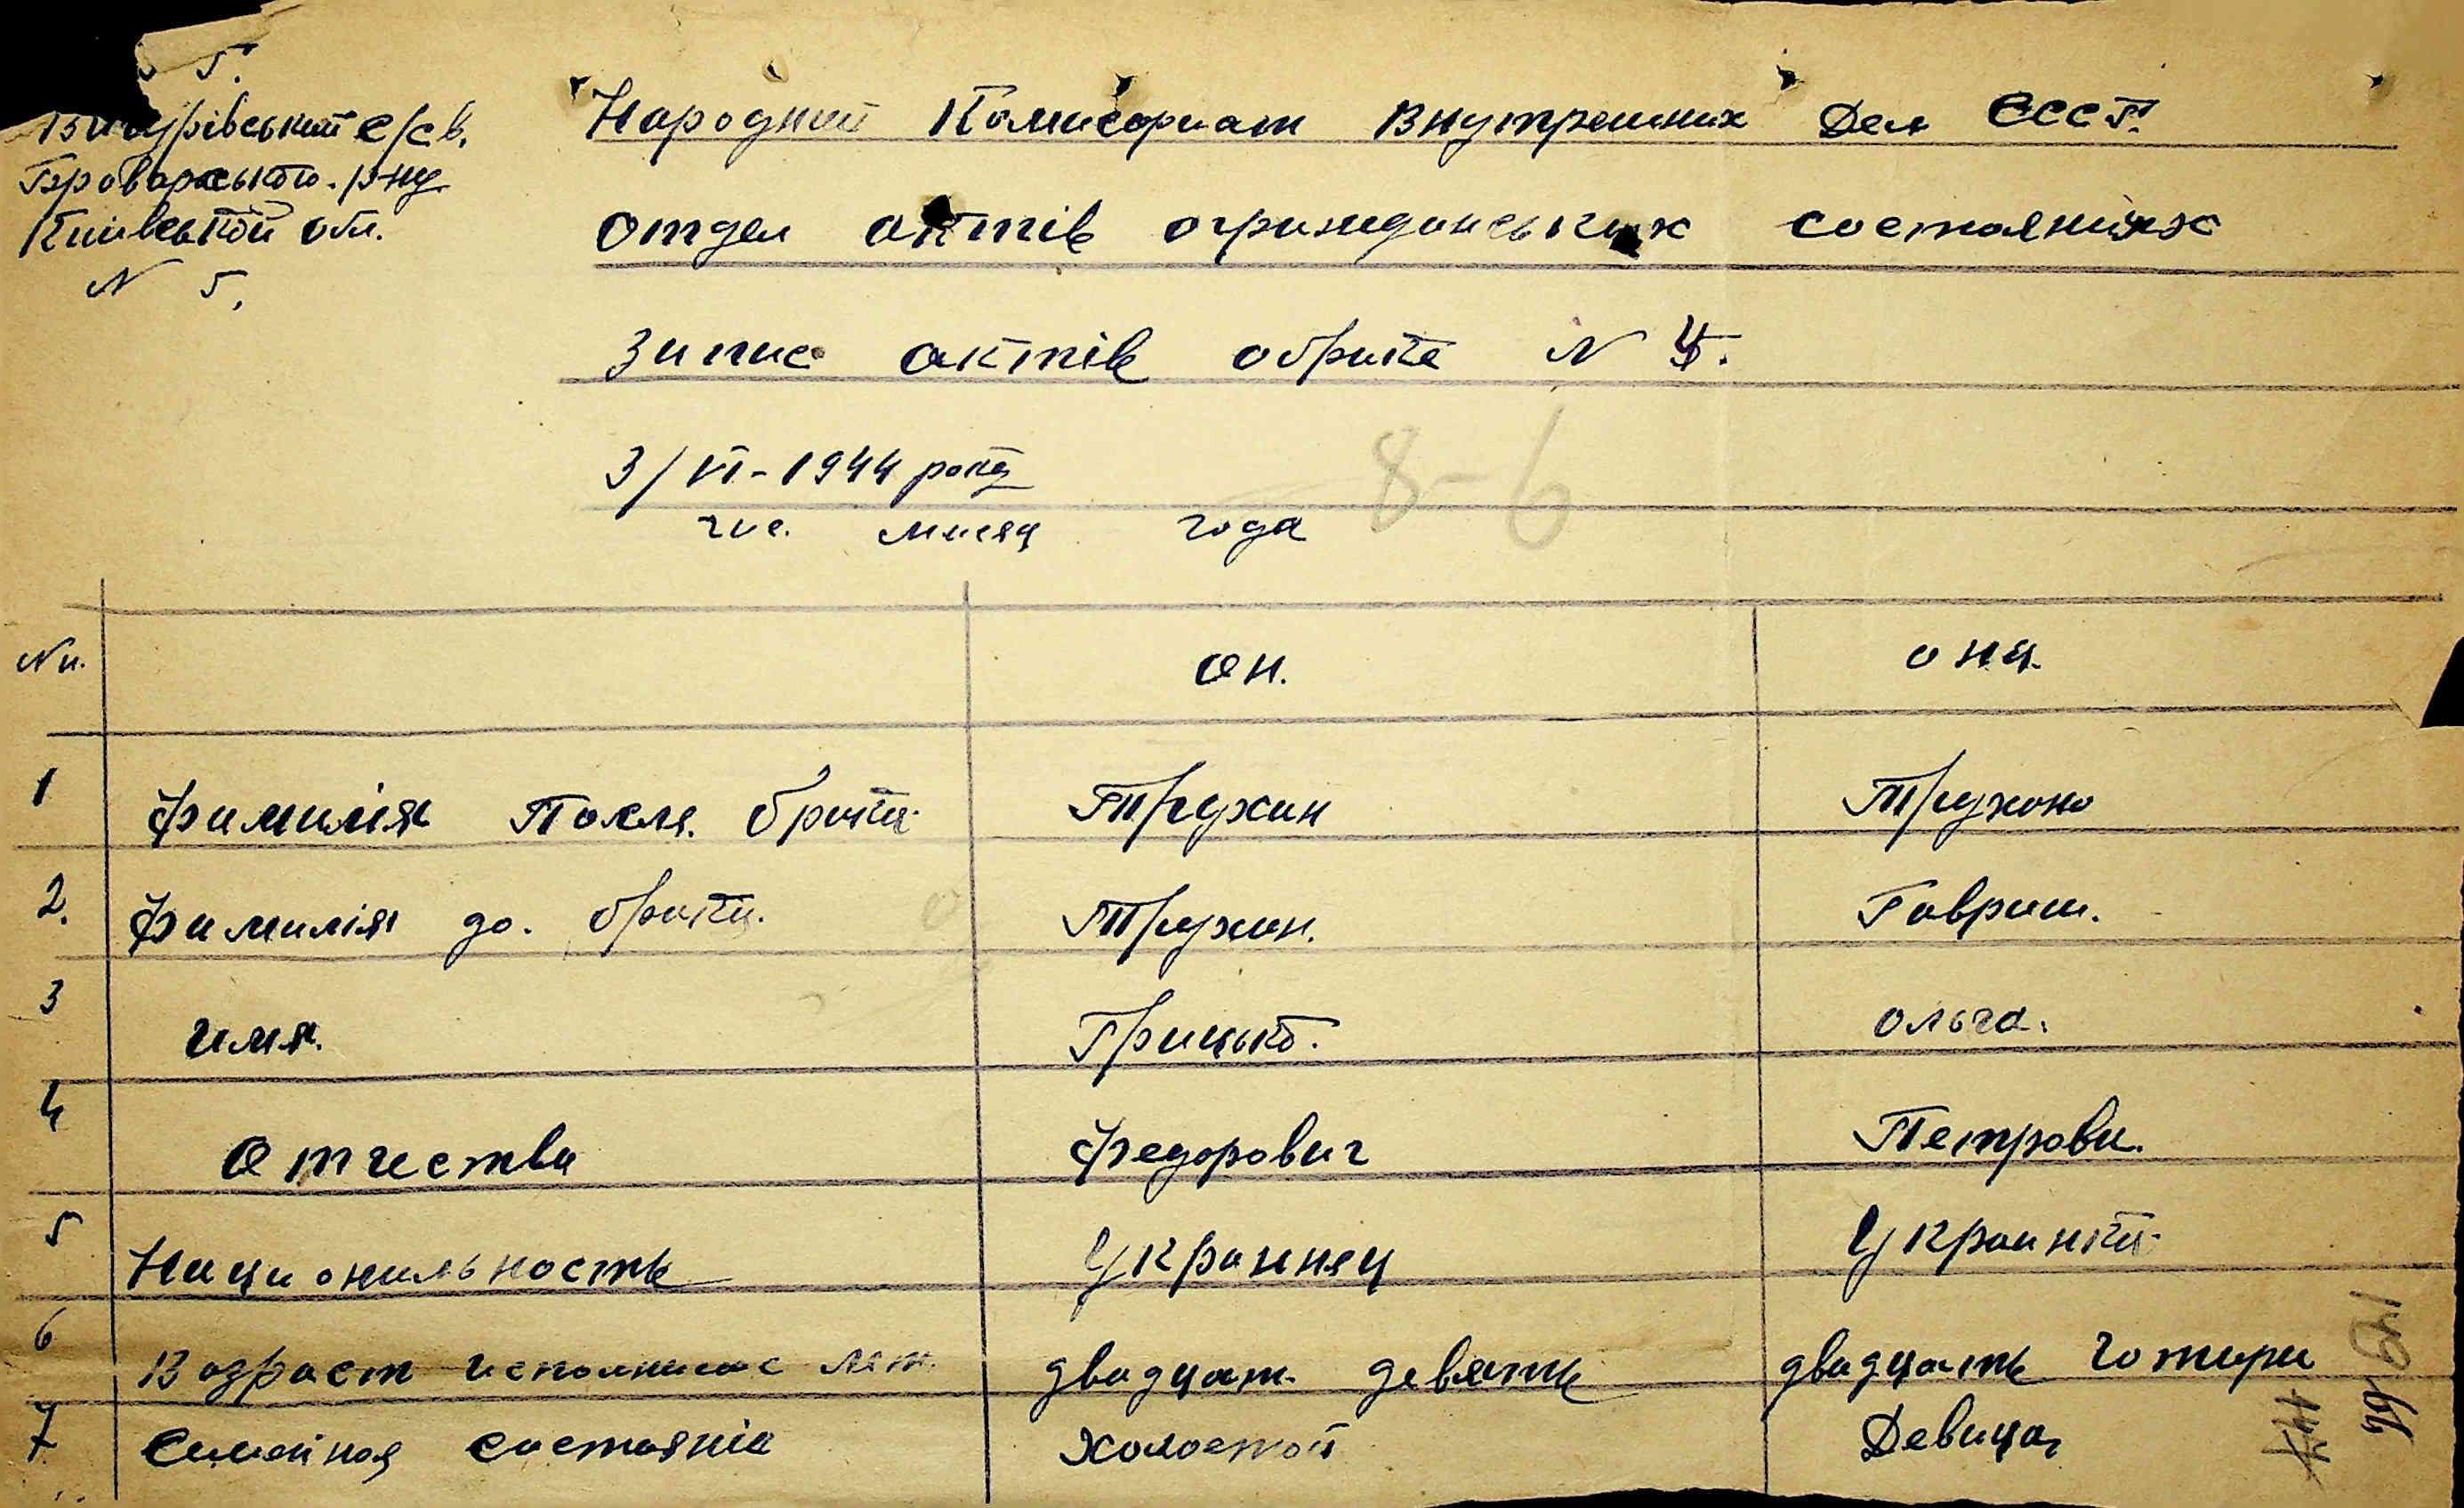 5.
Вигурівський с/св.
Броварського р-ну
Київської обл.
N 5.
Народний Комисариат Внутрених Дел СССР.
Отдел актів огражданських состояниях
Запис актів обраке N 4.
3/VI-1944 року
чис. мисяц года
8-6
Nп. он. она.
1 Фамилія После брака Трухан Трухано
2. Фамилія до. брака. Трухан. Гавриш.
3 имя. Грицько. Ольга.
4 Отчества Федорович Петровн.
5 Национальность Украинец Украинка
6 Возраст исполнилос лет. двадцат. девять двадцать чотири
7 Семейная состояніа Холостой Девица